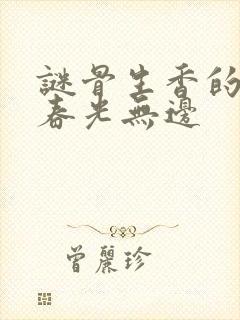 謎骨生香的
春光無邊
曾麗珍